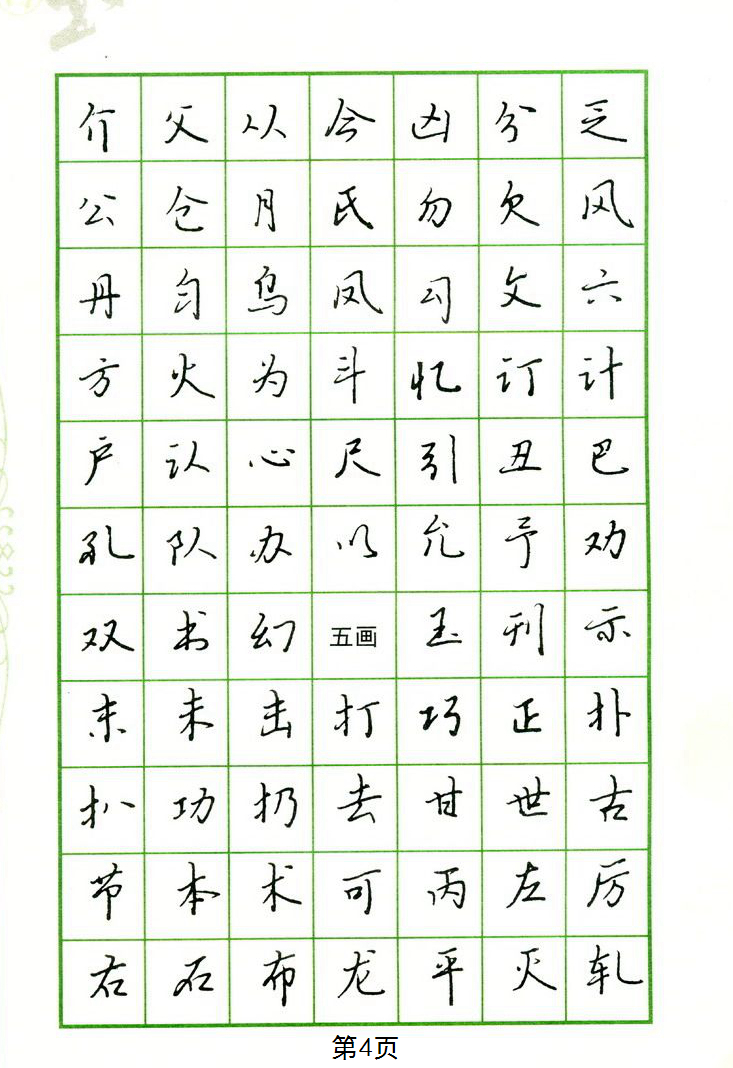 介 父 从 今 凶 分 乏
公 仓 月 氏 勿 欠 风
丹 匀 乌 凤 勾 文 六
方 火 为 斗 忆 订 计
户 认 心 尺 引 丑 巴
孔 队 办 以 允 予 劝
双 书 幻 五画 玉 刊 示
末 未 击 打 巧 正 扑
扒 功 扔 去 甘 世 古
节 本 术 可 丙 左 厉
右 石 布 龙 平 灭 轧
第4页